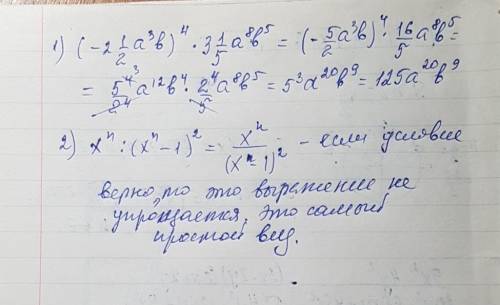 1) (-2 1/2 a³b)⁴ · 3 1/5 a⁸b⁵ = (-5/2 a³b)⁴ · 16/5 a⁸b⁵ =
= 5⁴/2⁴ ³ a¹²b⁴ · 2⁴/5 a⁸b⁵ = 5³a²⁰b⁹ = 125a²⁰b⁹
2) xⁿ : (xⁿ-1)² = xⁿ/(xⁿ-1)² - если условие
верно, то это выражение не
упрощается, это самый
простой вид.